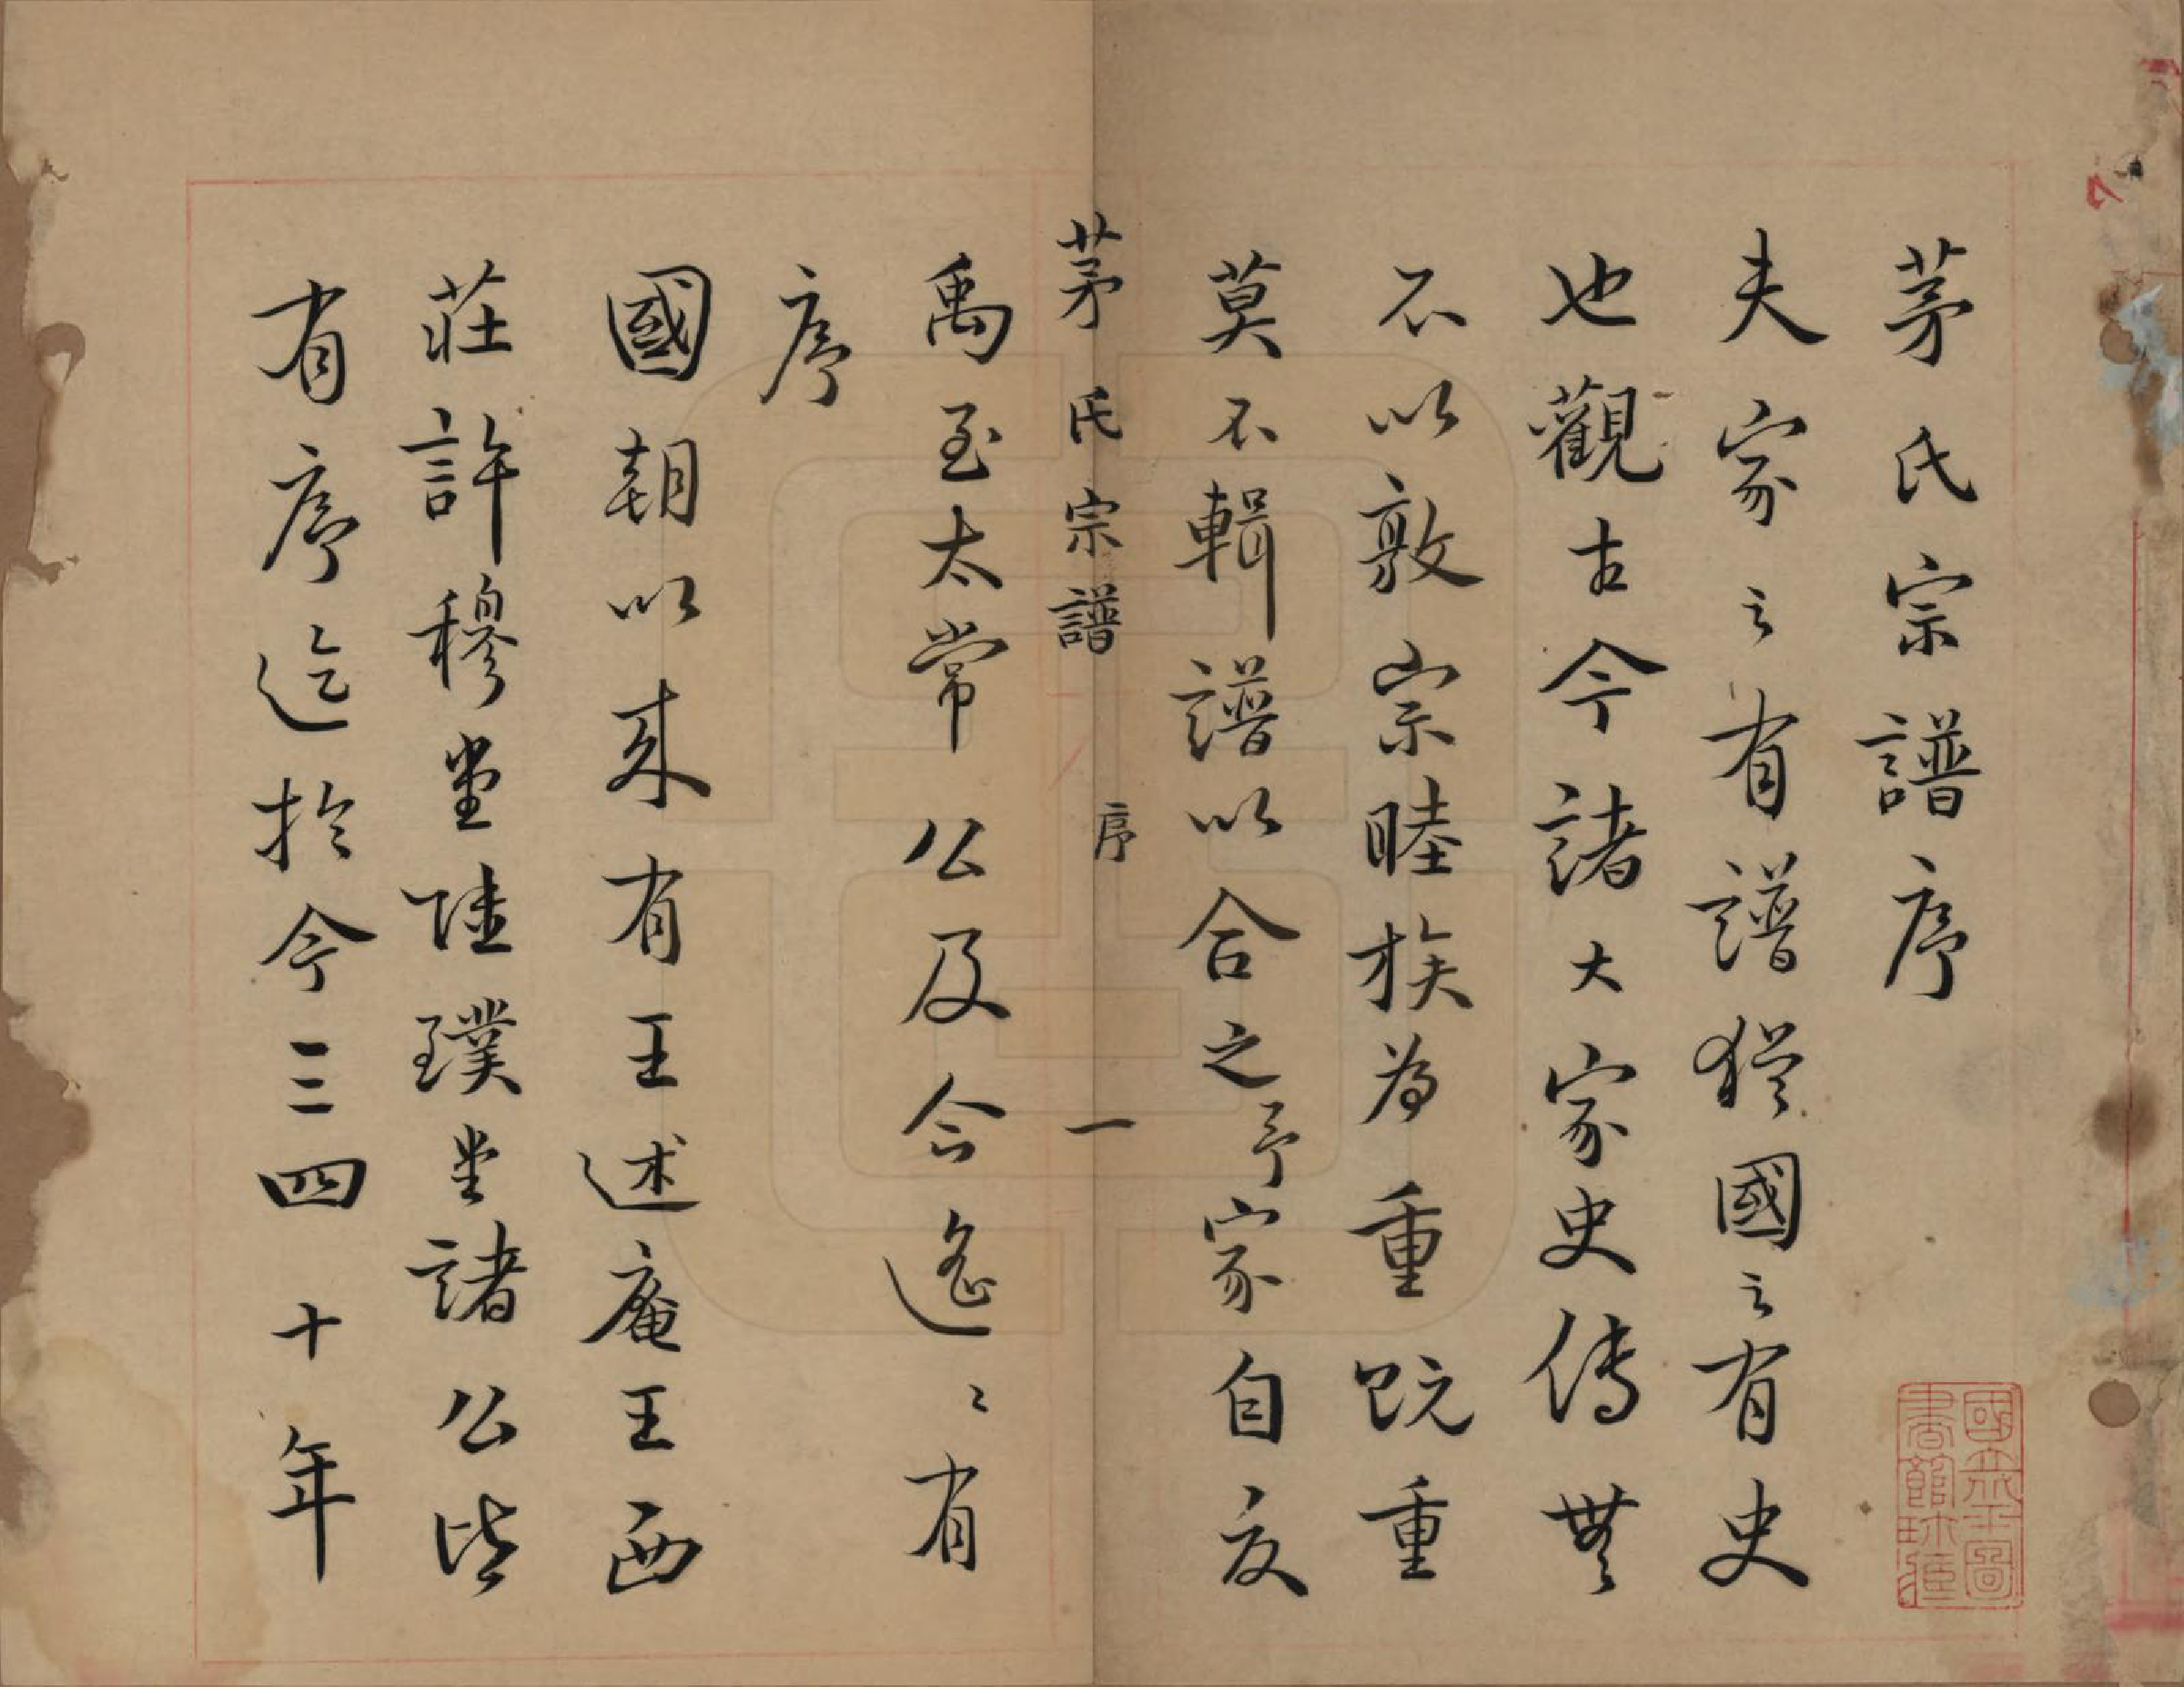 茅氏宗譜序
夫家之有譜猶國之有史
也觀古今諸大家史傳無
不以敦宗睦族為重既重
莫不輯譜以合之予家自友
茅氏宗譜 序 一
禹至太常公及合遙〻有
序
國朝以來有王述庵王西
莊許穆堂陸璞堂諸公皆
有序迄於今三四十年
國立北平圖
書館珍藏